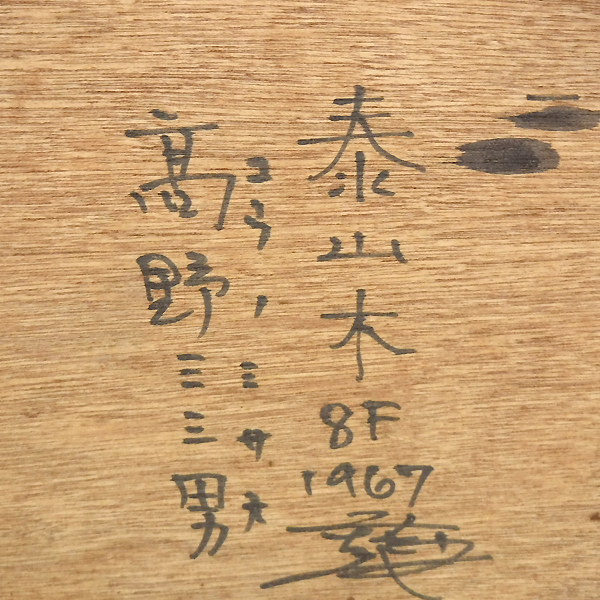 泰山木
8F
1967
コウノミサオ
高野三三男